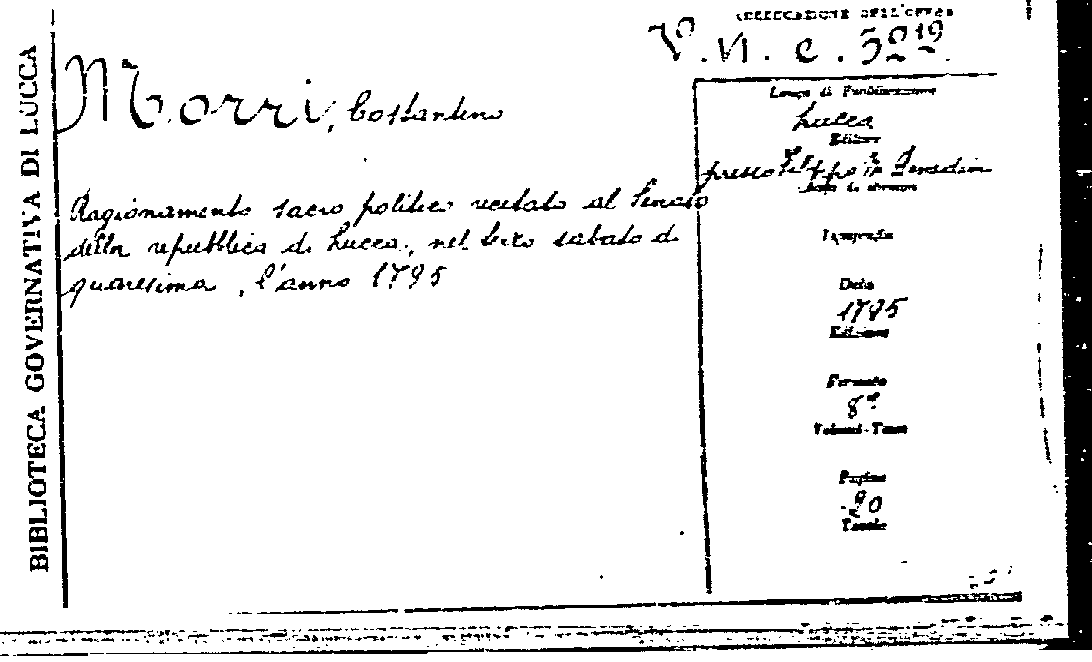 BIBLIOTECA GOVERNATIVA DI LUCCA
COLLOCAZIONE DELL'OPERA
Morri, Costantino
Ragionamento sacro politico recitato al Senato
della repubblica di Lucca, nel terzo sabato di
quaresima, l'anno 1795
Luogo di Pubblicazione
Lucca
Editore
presso
Tipografia
Data
1795
Edizione
Formato
8º
Volumi - Tomi
Pagine
20
Tavole